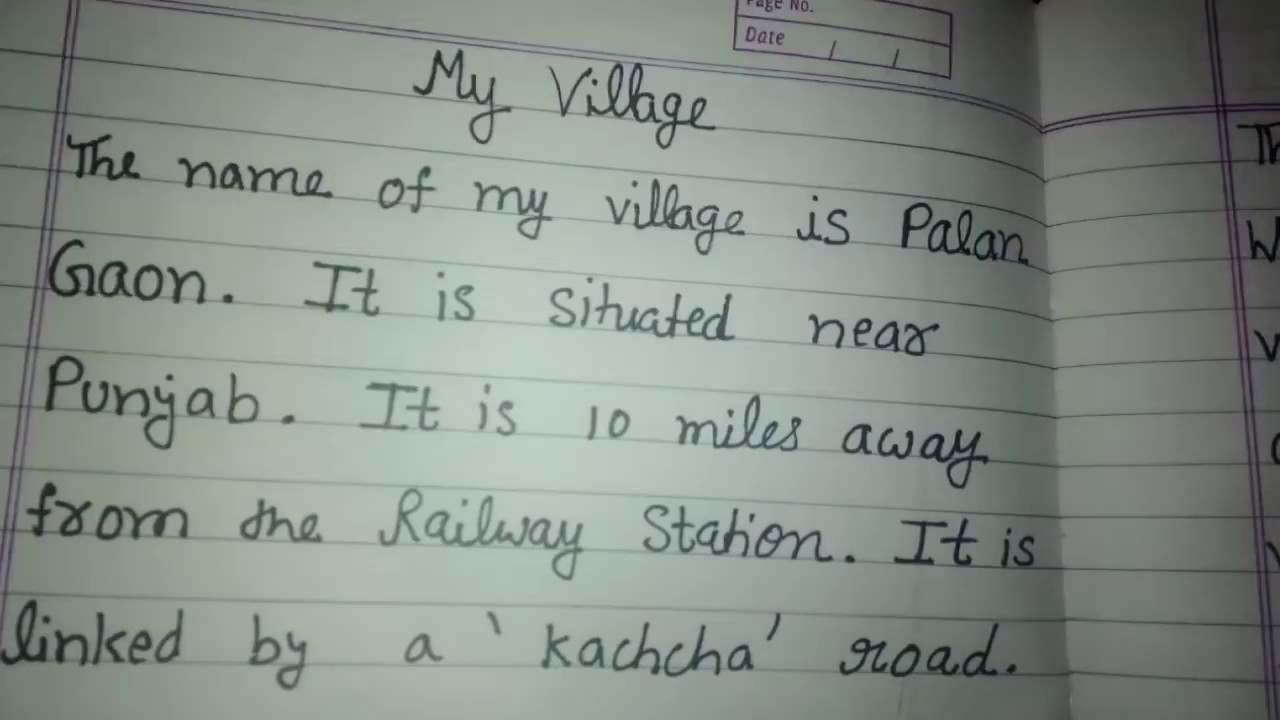 Page No.
Date / /
My Village
The name of my village is Palan
Gaon. It is situated near
Punjab. It is 10 miles away
from the Railway Station. It is
linked by a 'kachcha' road.